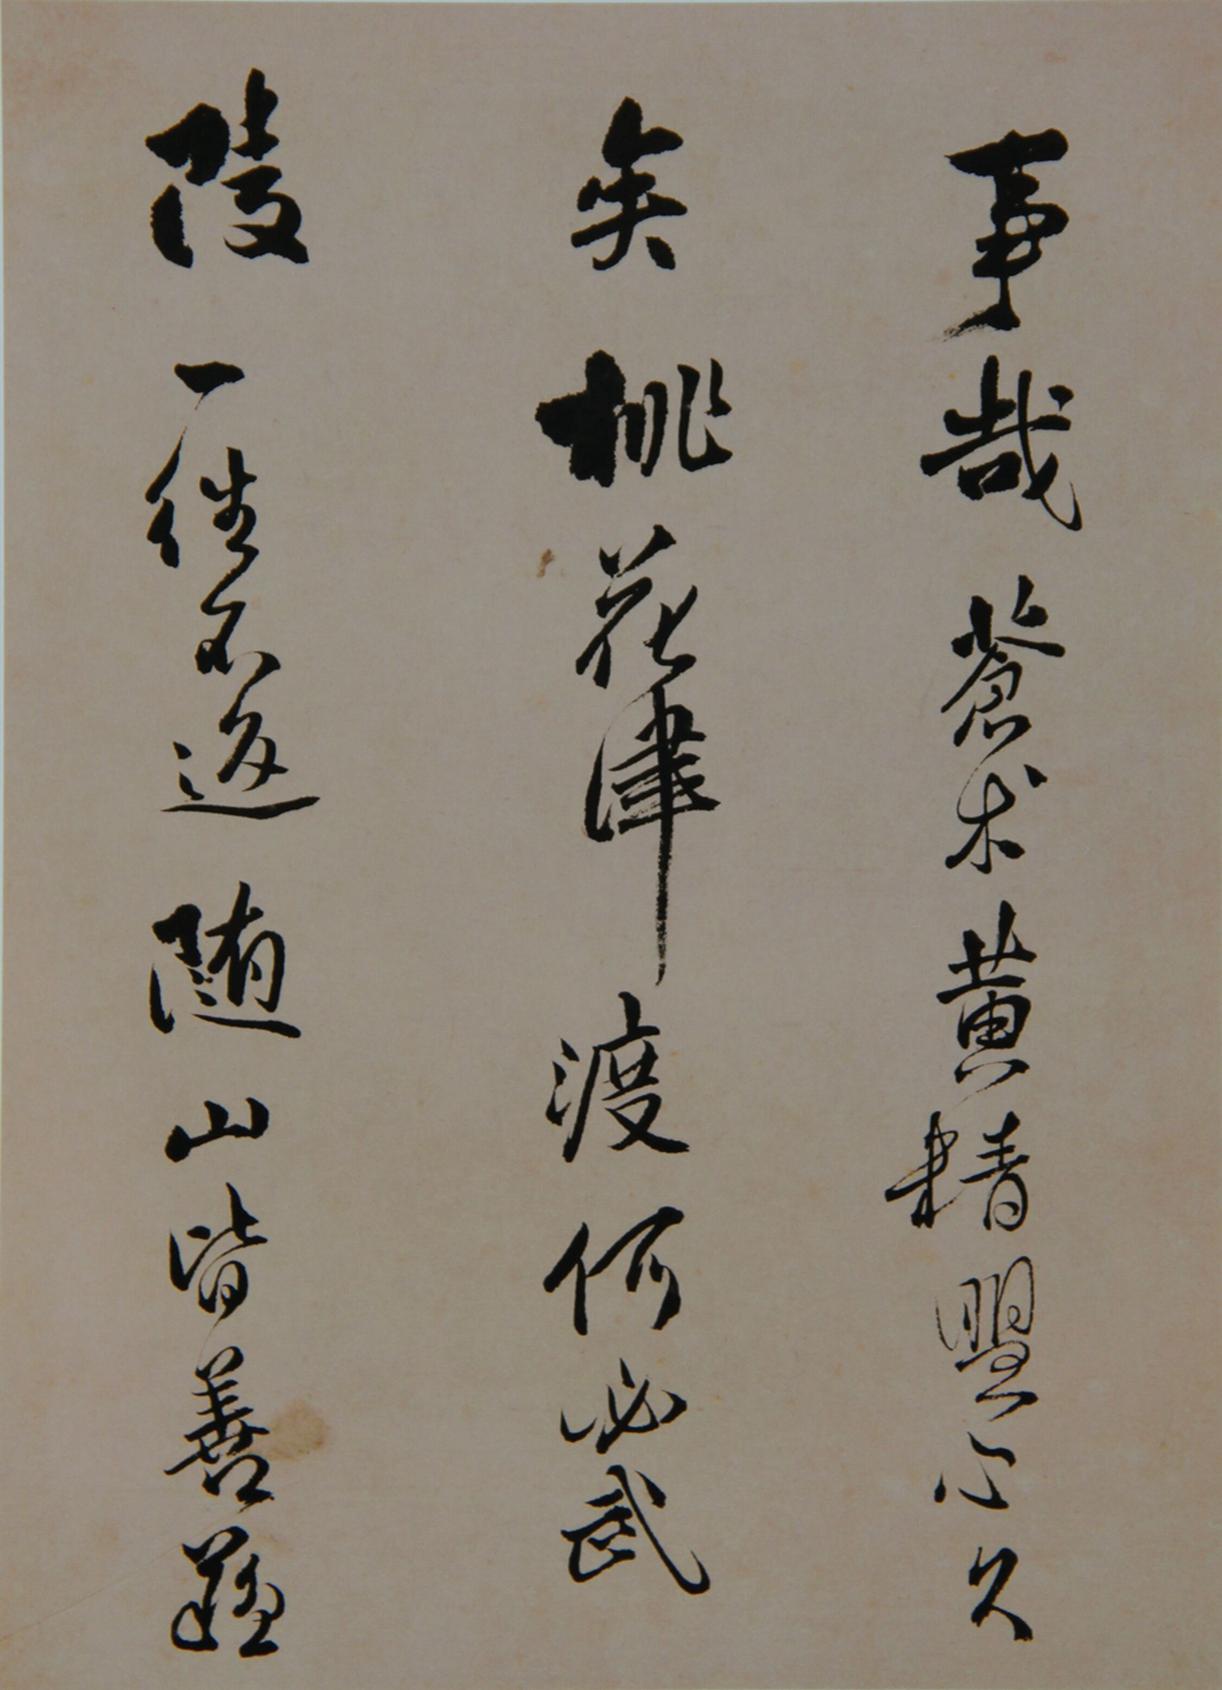 事哉蒼朮黄精盟不久
矣桃花津渡何必武
陵一往不返随山皆善